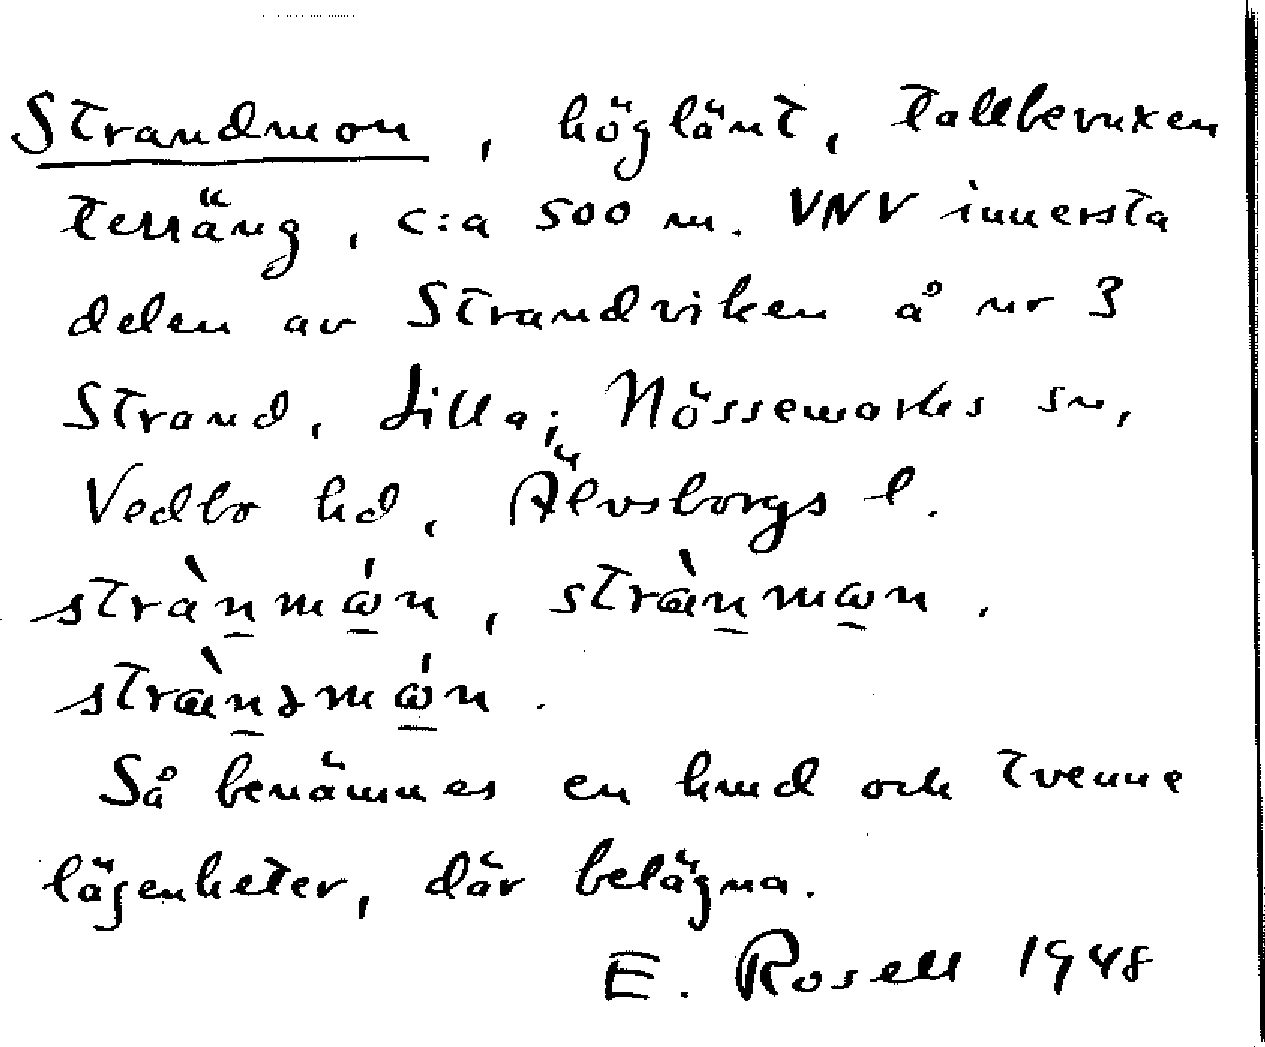 Strandmon, höglänt, tallbevuxen
terräng, c:a 500 m. VNV innersta
delen av Strandviken å nr 3
Strand, Lilla; Nössemarks sn,
Vedbo hd, Älvsborgs l.
strànmón, strænmon.
strænsmón.
Så benämnes en hmd och tvenne
lägenheter, där belägna.
E. Rosell 1948